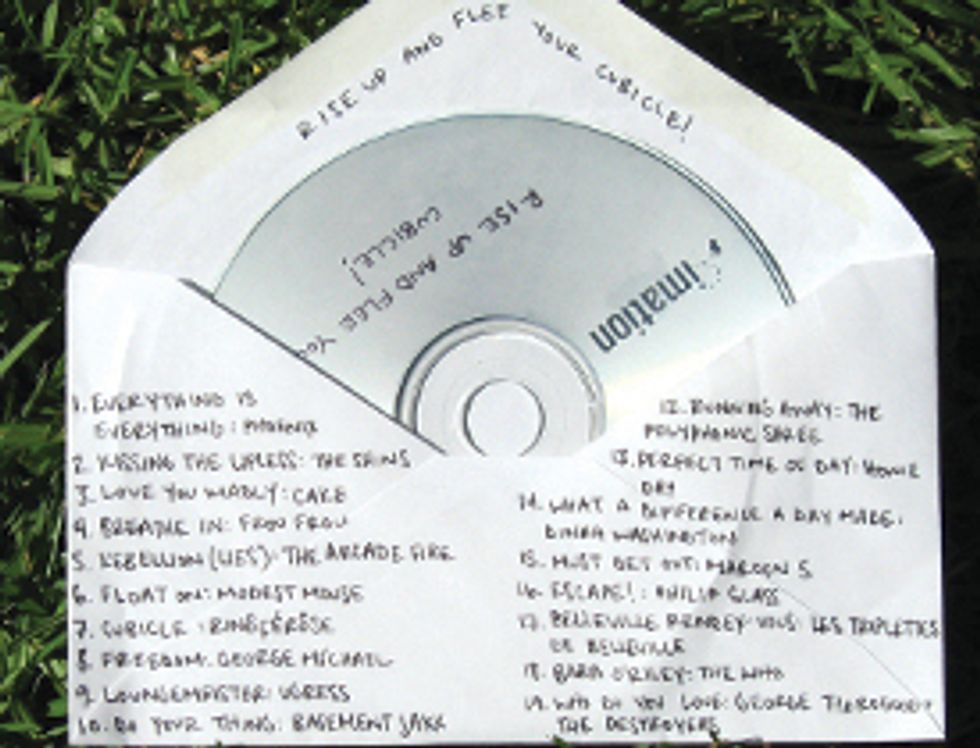 RISE UP AND FLEE YOUR CUBICLE!
RISE UP AND FLEE YOU
CUBICLE!
imation
1. EVERYTHING IS
EVERYTHING: PHOENIX
2. KISSING THE LIPLESS: THE SHINS
3. LOVE YOU MADLY: CAKE
4. BREATHE IN: FROU FROU
5. REBELLION (LIES): THE ARCADE FIRE
6. FLOAT ON: MODEST MOUSE
7. CUBICLE: RINÔÇÉRÔSE
8. FREEDOM: GEORGE MICHAEL
9. LOUNGEMEISTER: UGRESS
10. DO YOUR THING: BASEMENT JAXX
12. RUNNING AWAY: THE
POLYPHONIC SPREE
13. PERFECT TIME OF DAY: HOWIE
DAY
14. WHAT A DIFFERENCE A DAY MADE:
DINAH WASHINGTON
15. MUST GET OUT: MAROON 5
16. ESCAPE!: PHILIP GLASS
17. BELLEVILLE RENDEZ-VOUS: LES TRIPLETTES
DE BELLEVILLE
18. BABA O'RILEY: THE WHO
19. WHO DO YOU LOVE: GEORGE THOROGOOD &
THE DESTROYERS